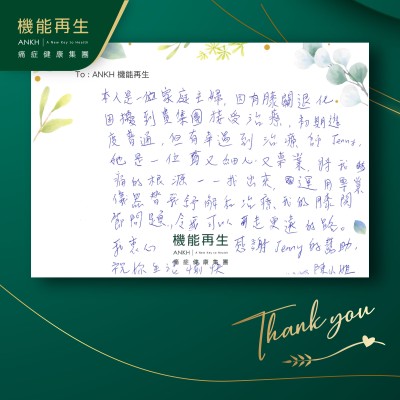 機能再生
ANKH | A New Key to Health
痛症健康集團
To : ANKH 機能再生
本人是一個家庭主婦，因有膝關退化
因機到貴集團接受治療，初期進
度普通，但有幸遇到治療師Jenny，
她是一位有又細心又專業，將我
痛的根源一一找出來，運用專業
儀器幫我紓解和治療，我的膝關
節問題，令我可以再走更遠的路。
我衷心 感謝Jenny的幫助，
祝你生活愉快
機能再生
ANKH | A New Key to Health
痛症健康集團
陳小姐
Thank you